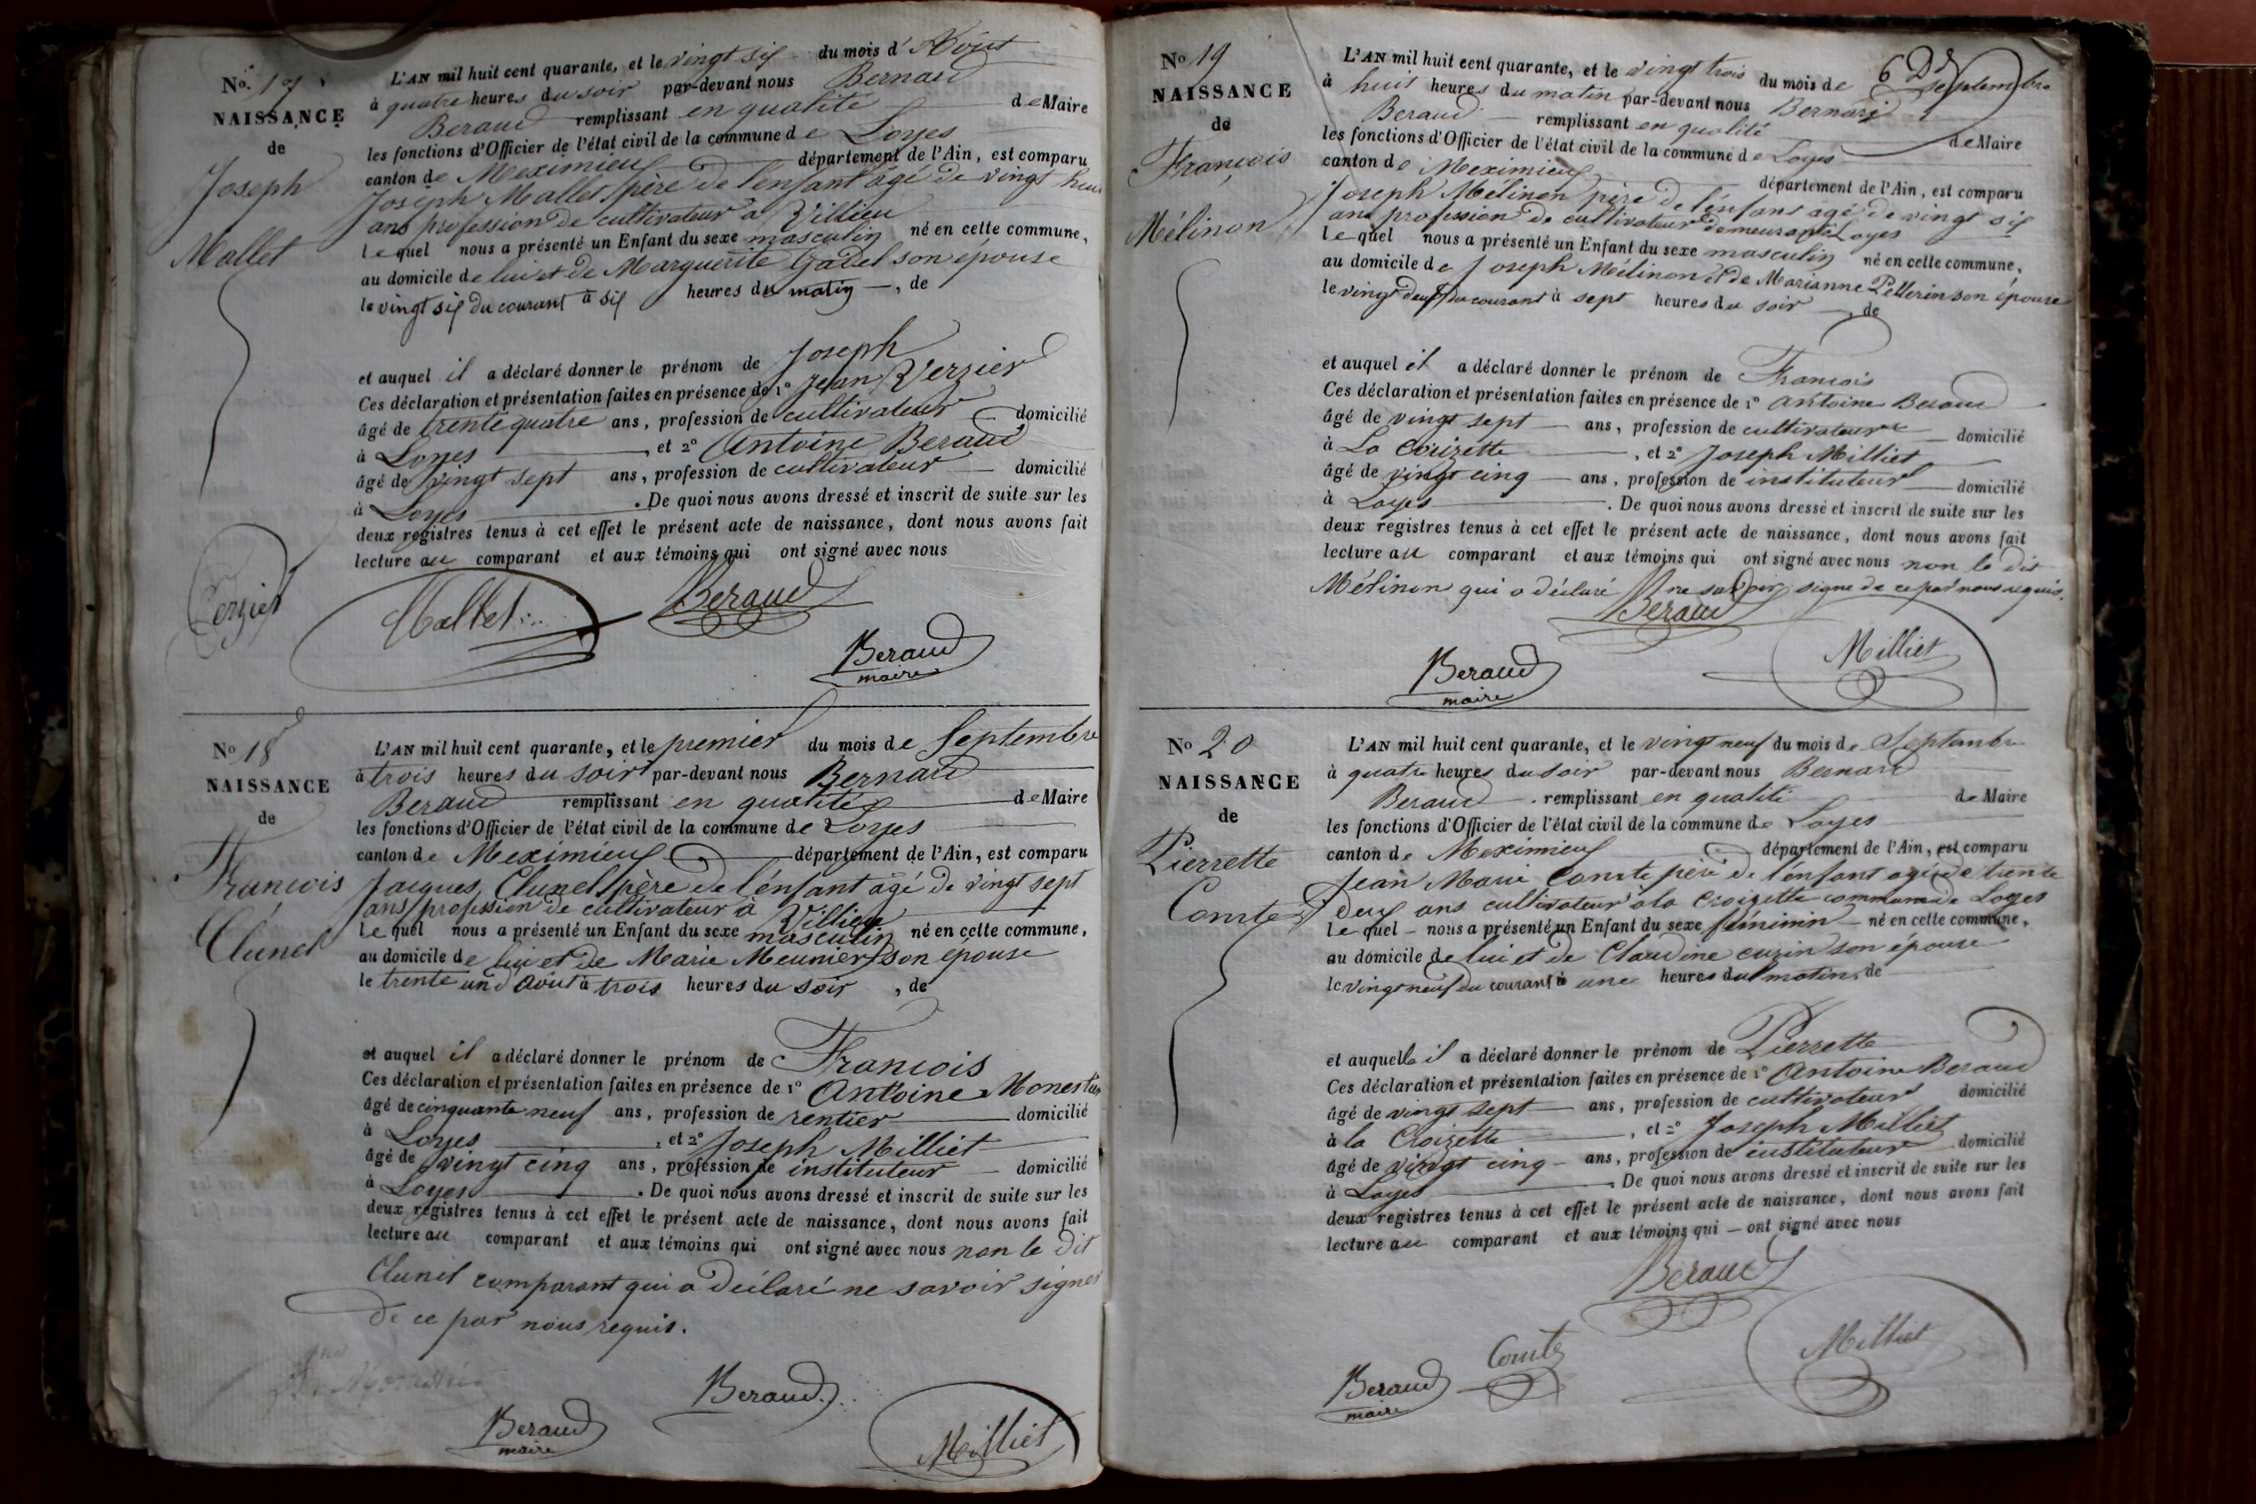 No. 17
NAISSANCE
de
Joseph
Mallet
L'AN mil huit cent quarante, et le vingt six du mois d'Aôut
à quatre heures du soir par-devant nous Bernard
Beraud remplissant en qualité de Maire
les fonctions d'Officier de l'état civil de la commune de Loyes
canton de Meximieux département de l'Ain, est comparu
Joseph Mallet père de l'enfant âgé de vingt huit
ans profession de cultivateur à Villieu
lequel nous a présenté un Enfant du sexe masculin né en cette commune,
au domicile de lui et de Marguerite son épouse
le vingt six du courant à six heures du matin, de
et auquel il a déclaré donner le prénom de Joseph
Ces déclaration et présentation faites en présence de 1° Jean Verzier
âgé de trente quatre ans, profession de cultivateur domicilié
à Loyes, et 2° Antoine Beraud
âgé de vingt sept ans, profession de cultivateur domicilié
à Loyes. De quoi nous avons dressé et inscrit de suite sur les
deux registres tenus à cet effet le présent acte de naissance, dont nous avons fait
lecture au comparant et aux témoins qui ont signé avec nous
Verzier Mallet Beraud
Beraud
maire
No 18
NAISSANCE
de
François
Clunel
L'AN mil huit cent quarante, et le premier du mois de Septembre
à trois heures du soir par-devant nous Bernard
Beraud remplissant en qualité de Maire
les fonctions d'Officier de l'état civil de la commune de Loyes
canton de Meximieux département de l'Ain, est comparu
Jacques Clunel père de l'énfant âgé de vingt sept
ans profession de cultivateur à Villieu
lequel nous a présenté un Enfant du sexe masculin né en cette commune,
au domicile de lui et de Marie Meunier son épouse
le trente un d'Aôut à trois heures du soir, de
et auquel il a déclaré donner le prénom de François
Ces déclaration et présentation faites en présence de 1° Antoine Monestier
âgé de cinquante neuf ans, profession de rentier domicilié
à Loyes, et 2° Joseph Milliet
âgé de vingt cinq ans, profession de instituteur domicilié
à Loyes. De quoi nous avons dressé et inscrit de suite sur les
deux registres tenus à cet effet le présent acte de naissance, dont nous avons fait
lecture au comparant et aux témoins qui ont signé avec nous non le dit
Clunel comparant qui a déclaré ne savoir signer
de ce par nous requis.
Beraud
Beraud
maire
Milliet
6 Dr
No 19
NAISSANCE
de
François
Mélinon
L'AN mil huit cent quarante, et le vingt trois du mois de Septembre
à huit heures du matin par-devant nous Bernard
Beraud remplissant en qualité de Maire
les fonctions d'Officier de l'état civil de la commune de Loyes
canton de Meximieux département de l'Ain, est comparu
Joseph Mélinon père de l'énfant âgé de vingt six
ans profession de cultivateur demeurant à Loyes
lequel nous a présenté un Enfant du sexe masculin né en cette commune,
au domicile de Joseph Mélinon et de Marianne Pellerin son épouse
le vingt deux du courant à sept heures du soir, de
et auquel il a déclaré donner le prénom de François
Ces déclaration et présentation faites en présence de 1° Antoine Beraud
âgé de vingt sept ans, profession de cultivateur domicilié
à La Croizette, et 2° Joseph Milliet
âgé de vingt cinq ans, profession de instituteur domicilié
à Loyes. De quoi nous avons dressé et inscrit de suite sur les
deux registres tenus à cet effet le présent acte de naissance, dont nous avons fait
lecture au comparant et aux témoins qui ont signé avec nous non le dit
Mélinon qui a déclaré ne savoir signe de ce par nous requis.
Beraud
Milliet
Beraud
maire
No 20
NAISSANCE
de
Pierrette
Comte
L'AN mil huit cent quarante, et le vingt neuf du mois de Septembre
à quatre heures du soir par-devant nous Bernard
Beraud remplissant en qualité de Maire
les fonctions d'Officier de l'état civil de la commune de Loyes
canton de Meximieux département de l'Ain, est comparu
Jean Marie Comte père de l'énfant agé de trente
deux ans cultivateur à la Croizette commune de Loyes
lequel nous a présenté un Enfant du sexe féminin né en cette commune,
au domicile de lui et de Claudine cuzin son épouse
le vingt neuf du courant à une heures du matin, de
et auquelle il a déclaré donner le prénom de Pierrette
Ces déclaration et présentation faites en présence de 1° Antoine Beraud
âgé de vingt sept ans, profession de cultivateur domicilié
à la Croizette, et 2° Joseph Milliet
âgé de vingt cinq ans, profession de instituteur domicilié
à Loyes. De quoi nous avons dressé et inscrit de suite sur les
deux registres tenus à cet effet le présent acte de naissance, dont nous avons fait
lecture au comparant et aux témoins qui ont signé avec nous
Beraud
Comte Milliet
Beraud
maire